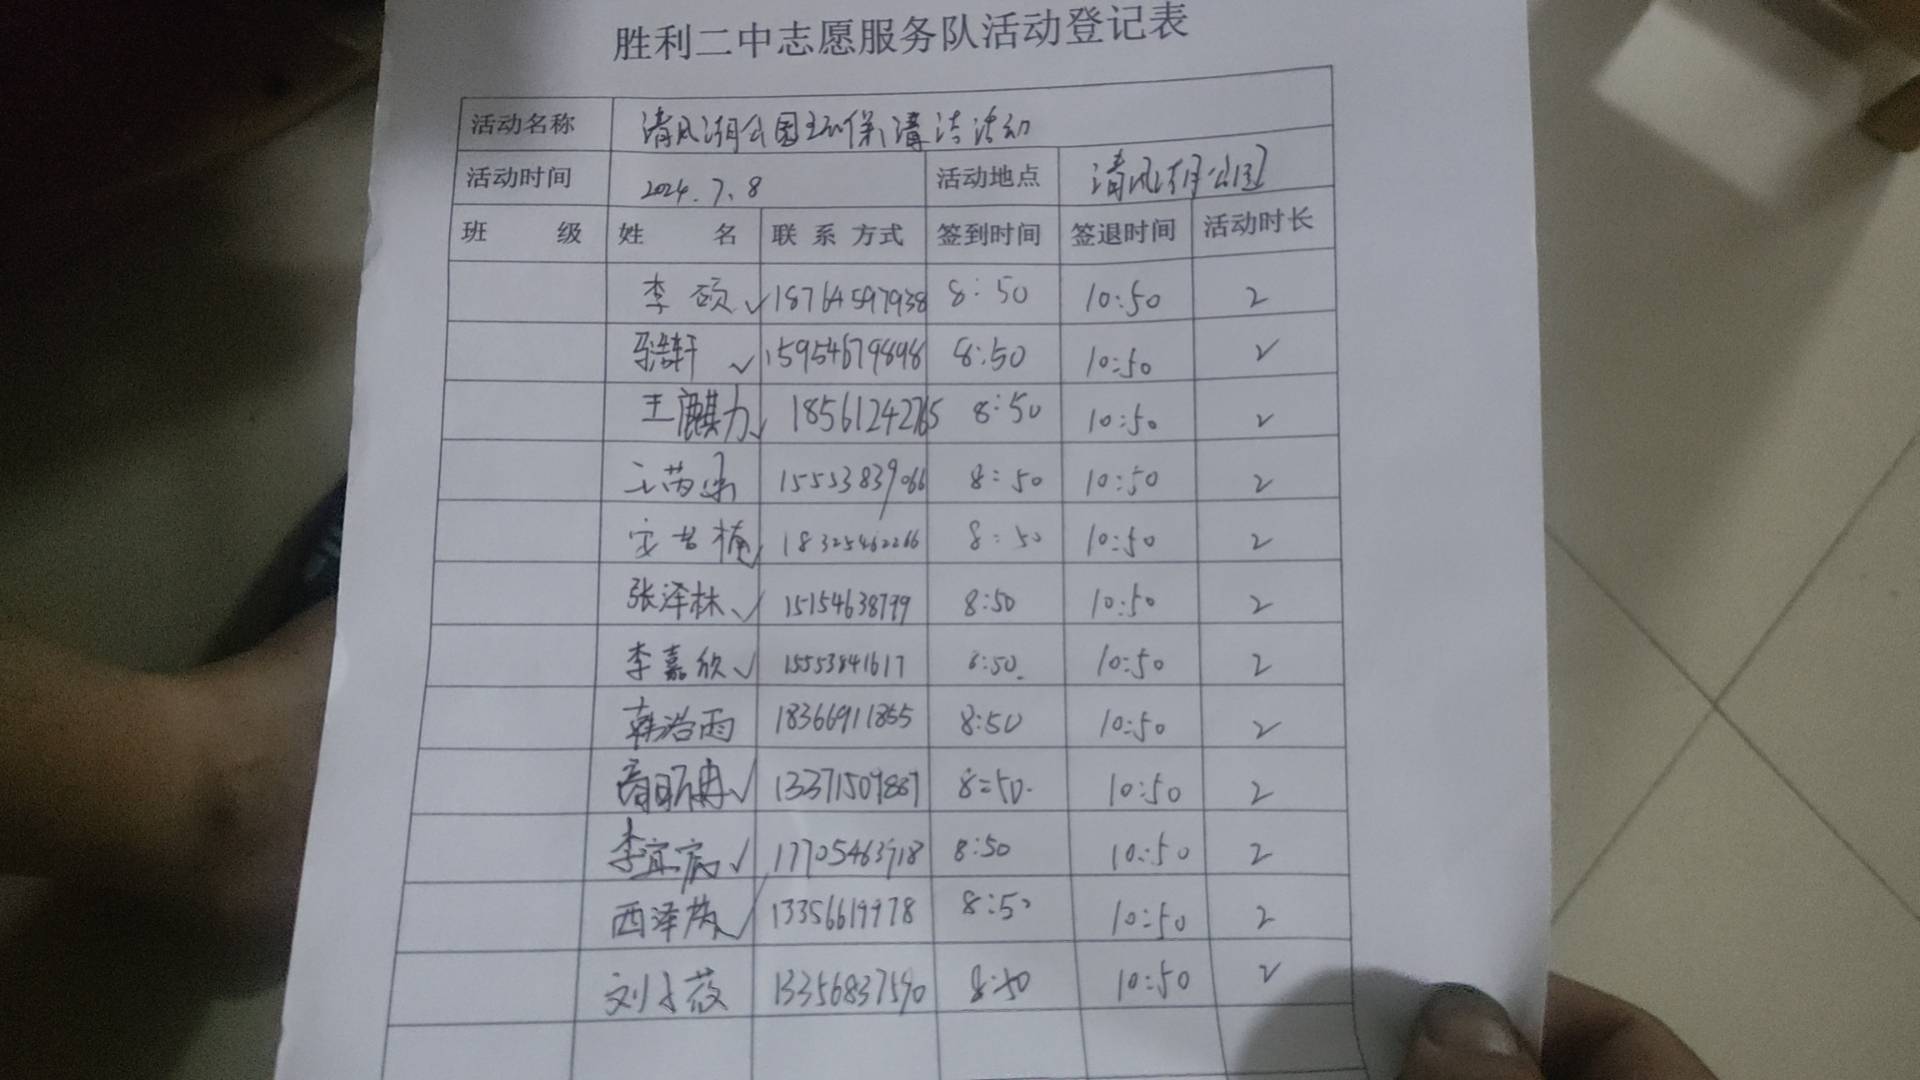 胜利二中志愿服务队活动登记表
活动名称 清风湖公园环保清洁活动
活动时间 2024.7.8 活动地点 清风湖公园
班 级 姓 名 联 系 方式 签到时间 签退时间 活动时长
李硕√ 18764597938 8:50 10:50 2
√ 15954679898 8:50 10:50 2
王麒力√ 18561242765 8:50 10:50 2
15553839066 8:50 10:50 2
18325462266 8:50 10:50 2
张泽林√ 15154638799 8:50 10:50 2
李嘉欣√ 15553841617 8:50. 10:50 2
韩浩雨 18366911855 8:50 10:50 2
√ 13371509887 8:50. 10:50 2
李宜宸√ 17705463918 8:50 10:50 2
西泽√ 13356619978 8:50 10:50 2
刘子筱 13356837590 8:50 10:50 2